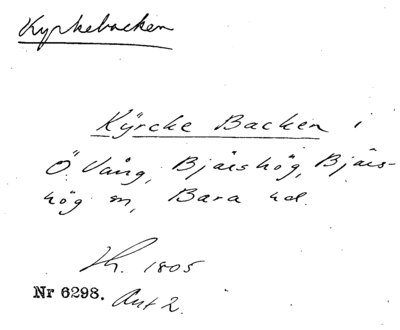 Kyrkebacken
Kÿrcke Backen i
Ö. Vång, Bjäshög, Bjäs-
hög sn, Bara hd.
Lh. 1805
Nr 6298. Akt 2.